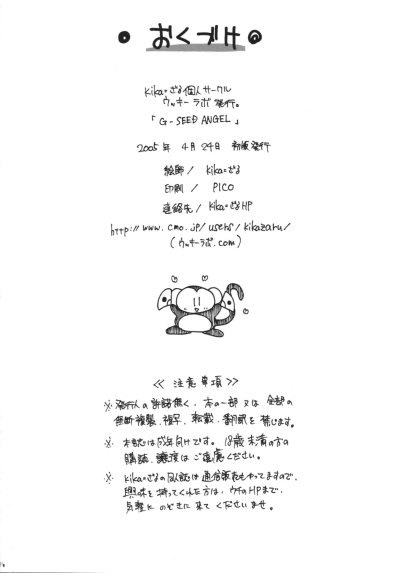 おくづけ
Kika=ざる個人サークル
ウッキーラボ 発行。
「G-SEED ANGEL」
2005年 4月24日 初版発行
絵師 / Kika=ざる
印刷 / PICO
連絡先 / Kika=ざるHP
http://www.cmo.jp/users/kikazaru/
(ウッキーラボ.com)
≪ 注意事項 ≫
※ 発行人の許諾無く、本の一部又は全部の
無断複製、複写、転載、翻訳を禁じます。
※ 本誌は成年向けです。18歳未満の方の
購読、譲渡はご遠慮ください。
※ Kika=ざるの同人誌は通信販売もやってますので、
興味を持ってくれた方は、ウチのHPまで、
気軽にのぞきに来てくださいませ。